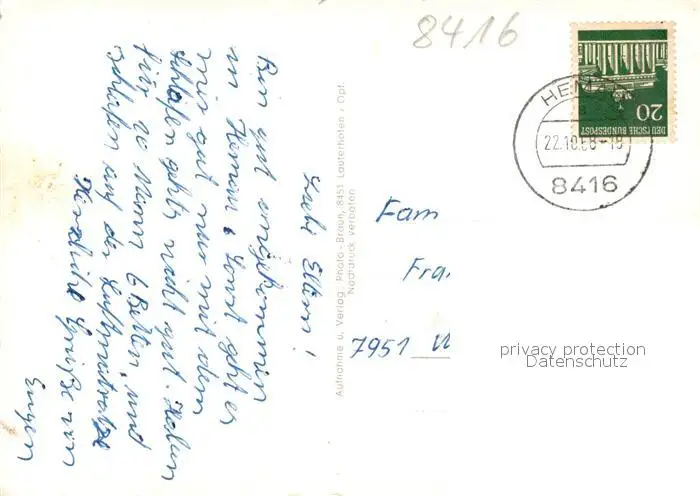 8416
Liebe Eltern!
Bin gut angekommen
in Hemau. Sonst geht es
mir gut nur mit dem
Schlafen geht's nicht gut. Haben
für 20 Mann 6 Betten, und
schlafen auf der Luftmatratze
Herzliche Grüße von
Eugen
Aufnahme u. Verlag: Photo-Braun, 8451 Lauterhofen / Opf.
Nachdruck verboten
HEM
22.10.68-18
8416
20
DEUTSCHE BUNDESPOST
Fam
Fra
7951 W
privacy protection
Datenschutz